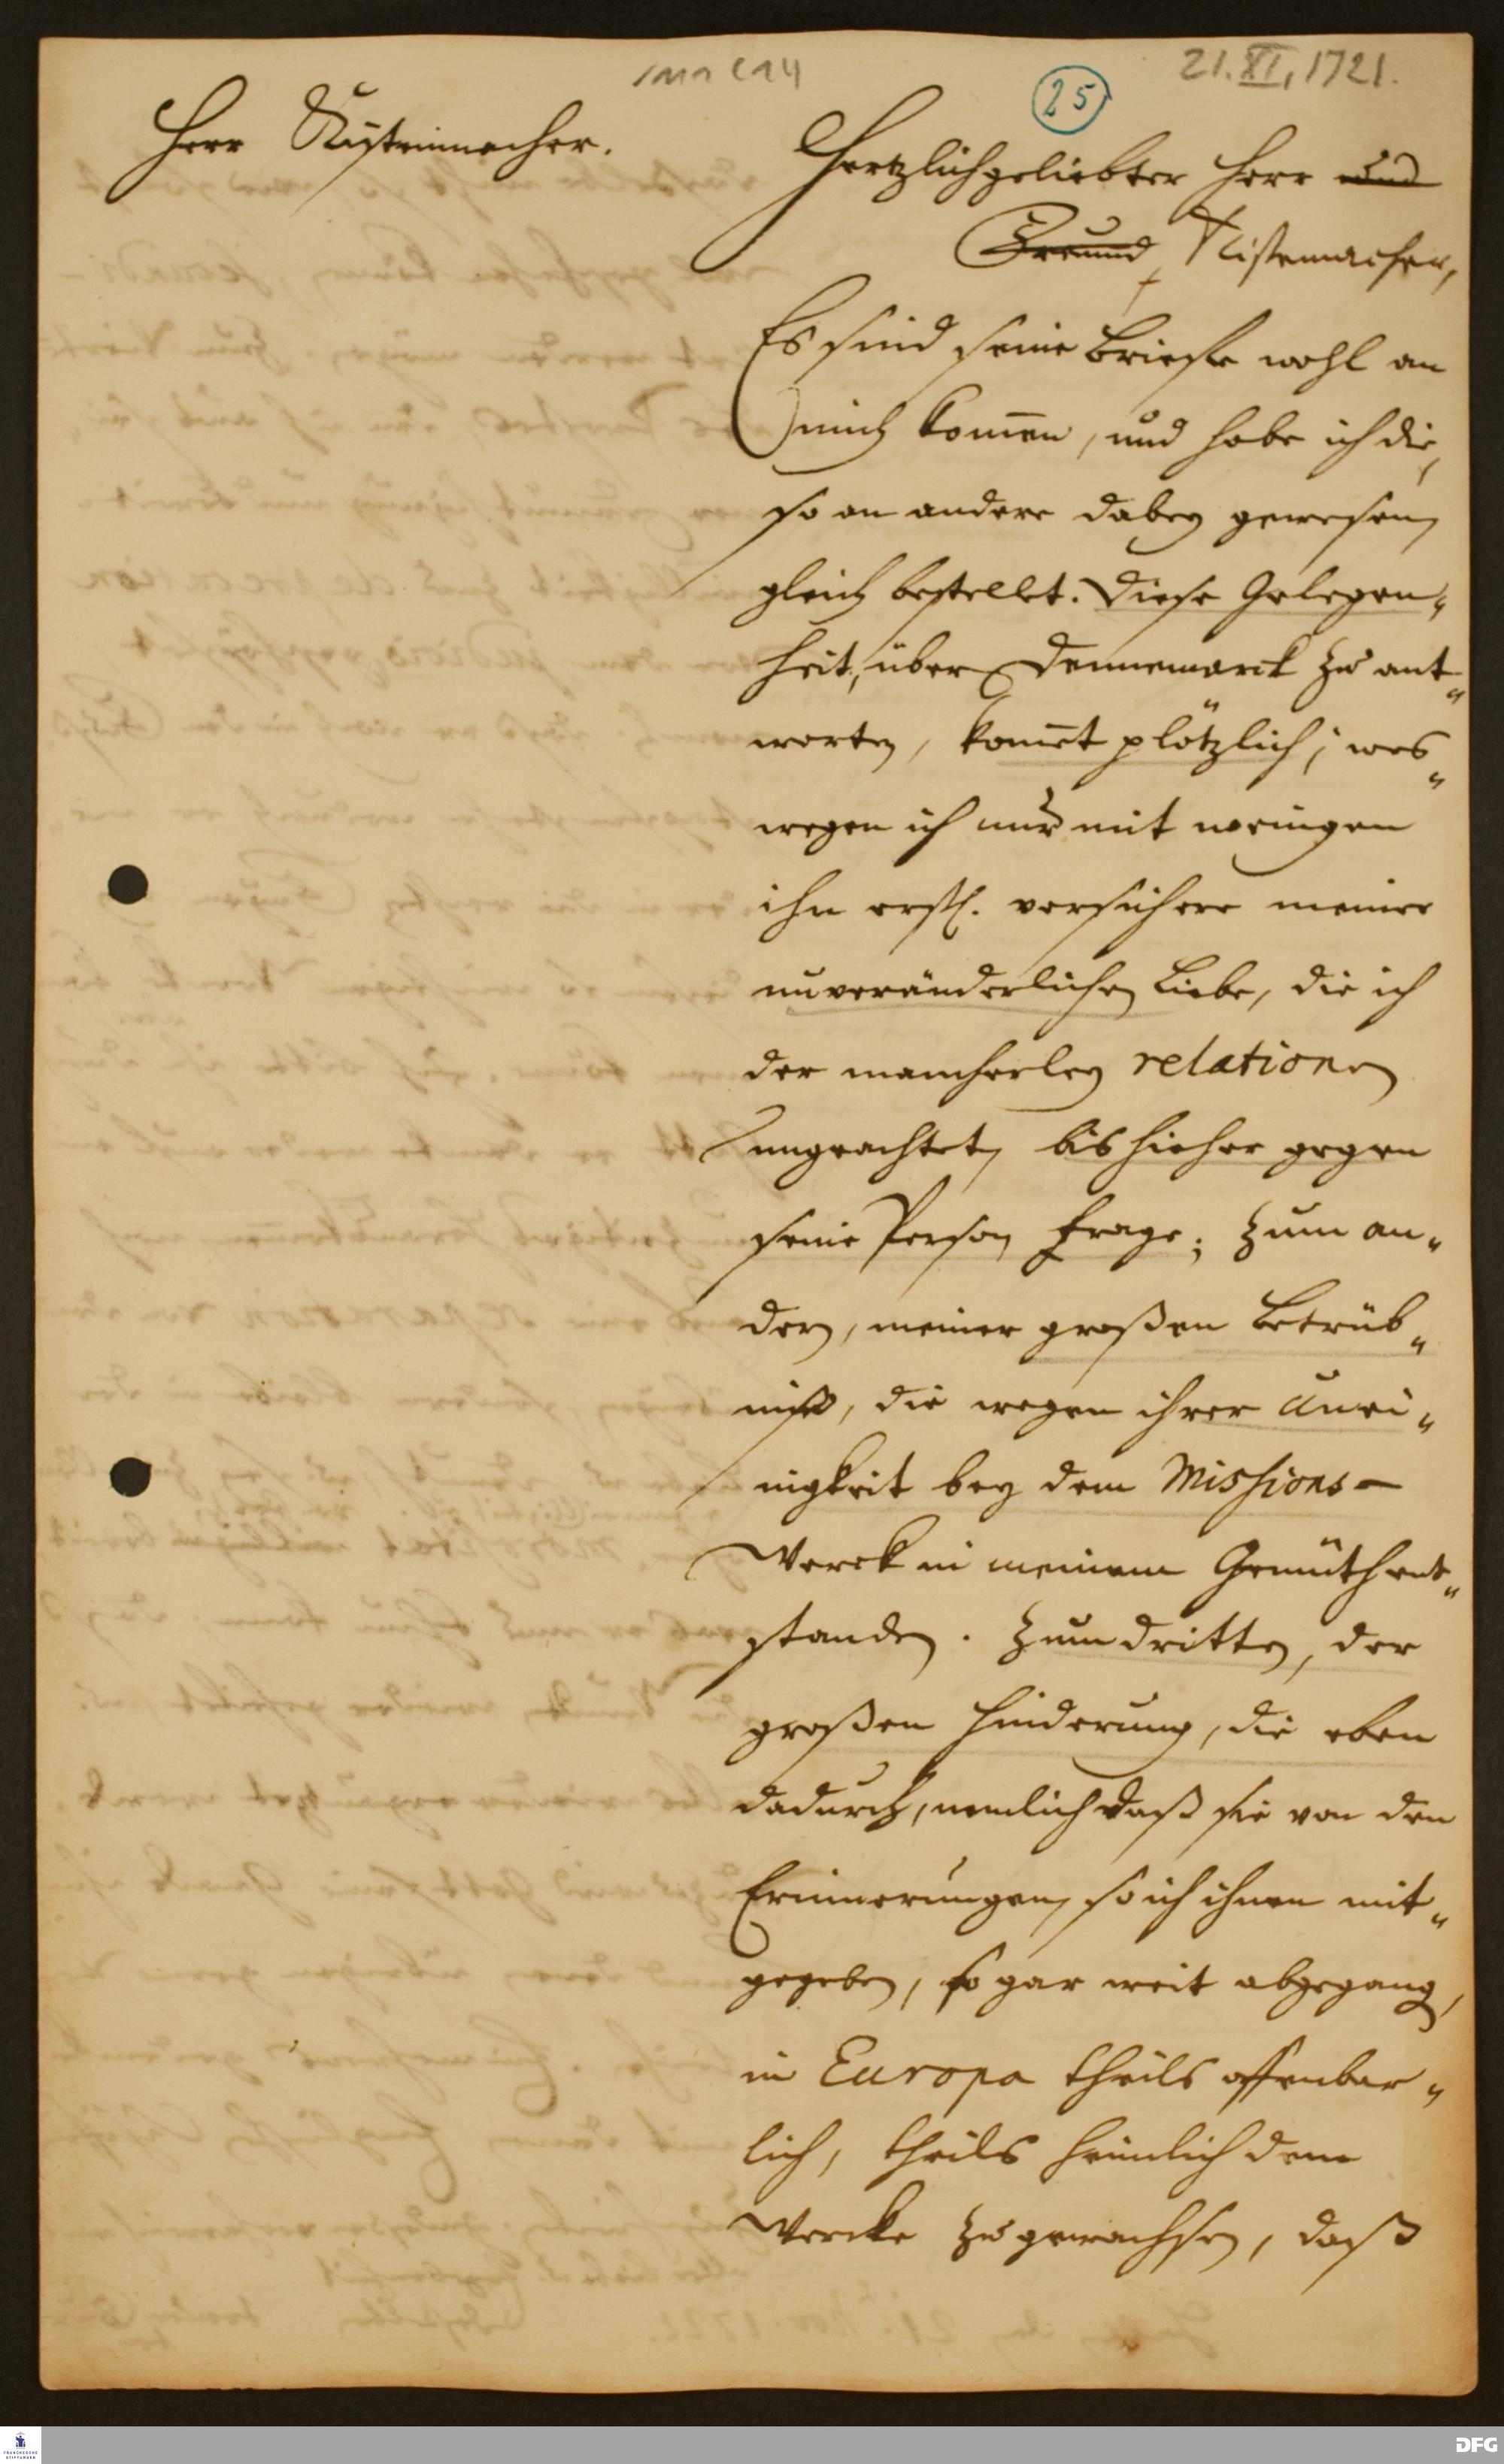 1M1 C 14
25
21. XI, 1721.
Herr Kistenmacher.
Hertzlichgeliebter Herr und
Freund, Kistenmacher,
Es sind seine Briefe wohl an
mich kom̅en, und habe ich die,
so an andere dabey gewesen,
gleich bestellet. Diese Gelegen„
heit, über Dennemarck zu ant„
worten, kom̅t plötzlich; wes„
wegen ich nur mit wenigen
ihn erstl. versichere meiner
unveränderlichen Liebe, die ich
der mancherley relationen
ungeachtet, bis hieher gegen
seine Person trage; zum an„
dern, meiner großen Betrüb„
niß, die wegen ihrer Unei„
nigkeit bey dem Missions-
Werck in meinem Gemüth ent„
standen. Zum dritten, der
großen Hinderung, die eben
dadurch, nemlich daß sie von den
Erinnerungen, so ich ihnen mit„
gegeben, so gar weit abgegangen,
in Europa theils offenbar„
lich, theils heimlich dem
Wercke zugewachsen, daß
FRANCKESCHE
STIFTUNGEN
DFG